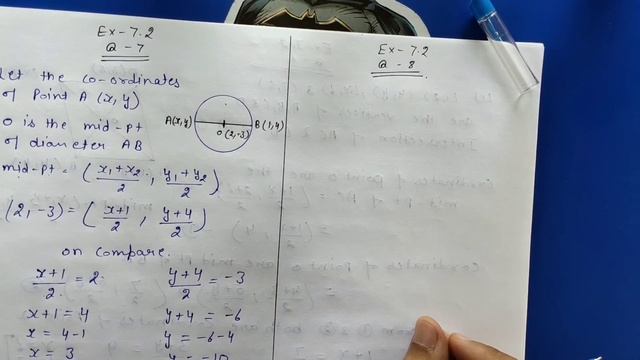 Ex-7.2
Q-7
Let the co-ordinates
of Point A (x,y)
O is the mid-pt
of diameter AB
A(x,y)
B(1,4)
O (2,-3)
mid-pt = (x₁+x₂/2 , y₁+y₂/2)
(2,-3) = (x+1/2 , y+4/2)
on compare.
x+1/2 = 2
x+1 = 4
x = 4-1
x = 3
y+4/2 = -3
y+4 = -6
y = -6-4
y = -10
Ex-7.2
Q-8